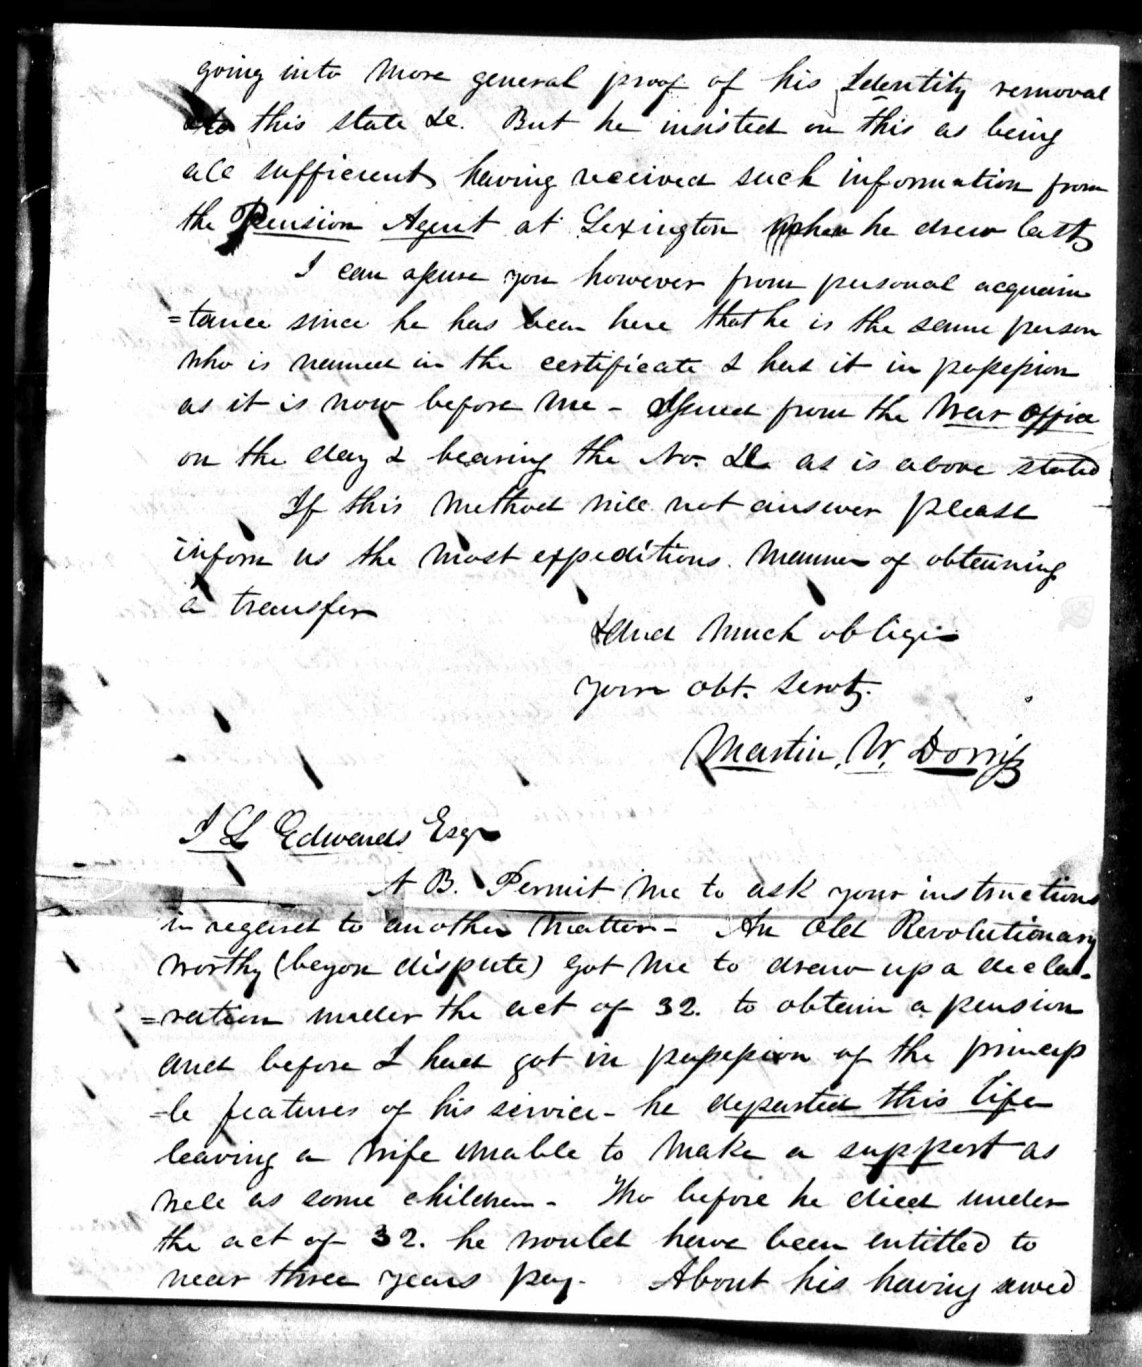 going into more general proof of his Identity removal
to this state &c. But he insisted on this as being
all sufficient having received such information from
the Pension Agent at Lexington when he drew last
I can assure you however from personal acquain
=tance since he has been here that he is the same person
who is named in the certificate & had it in possession
as it is now before me - Issued from the War office
on the day & bearing the No. &c as is above stated
If this method will not answer please
inform us the most expeditious manner of obtaining
a transfer
And much oblige
your obt. Servt.
Martin W. Dorris
J L Edwards Esqr
N B. Permit me to ask your instructions
in regard to another matter - An Old Revolutionary
worthy (beyon dispute) got me to draw up a decla-
=ration under the act of 32. to obtain a pension
and before I had got in possession of the princip
-le features of his service - he departed this life
leaving a wife unable to make a support as
well as some children - Tho before he died under
the act of 32. he would have been entitled to
near three years pay - About his having served